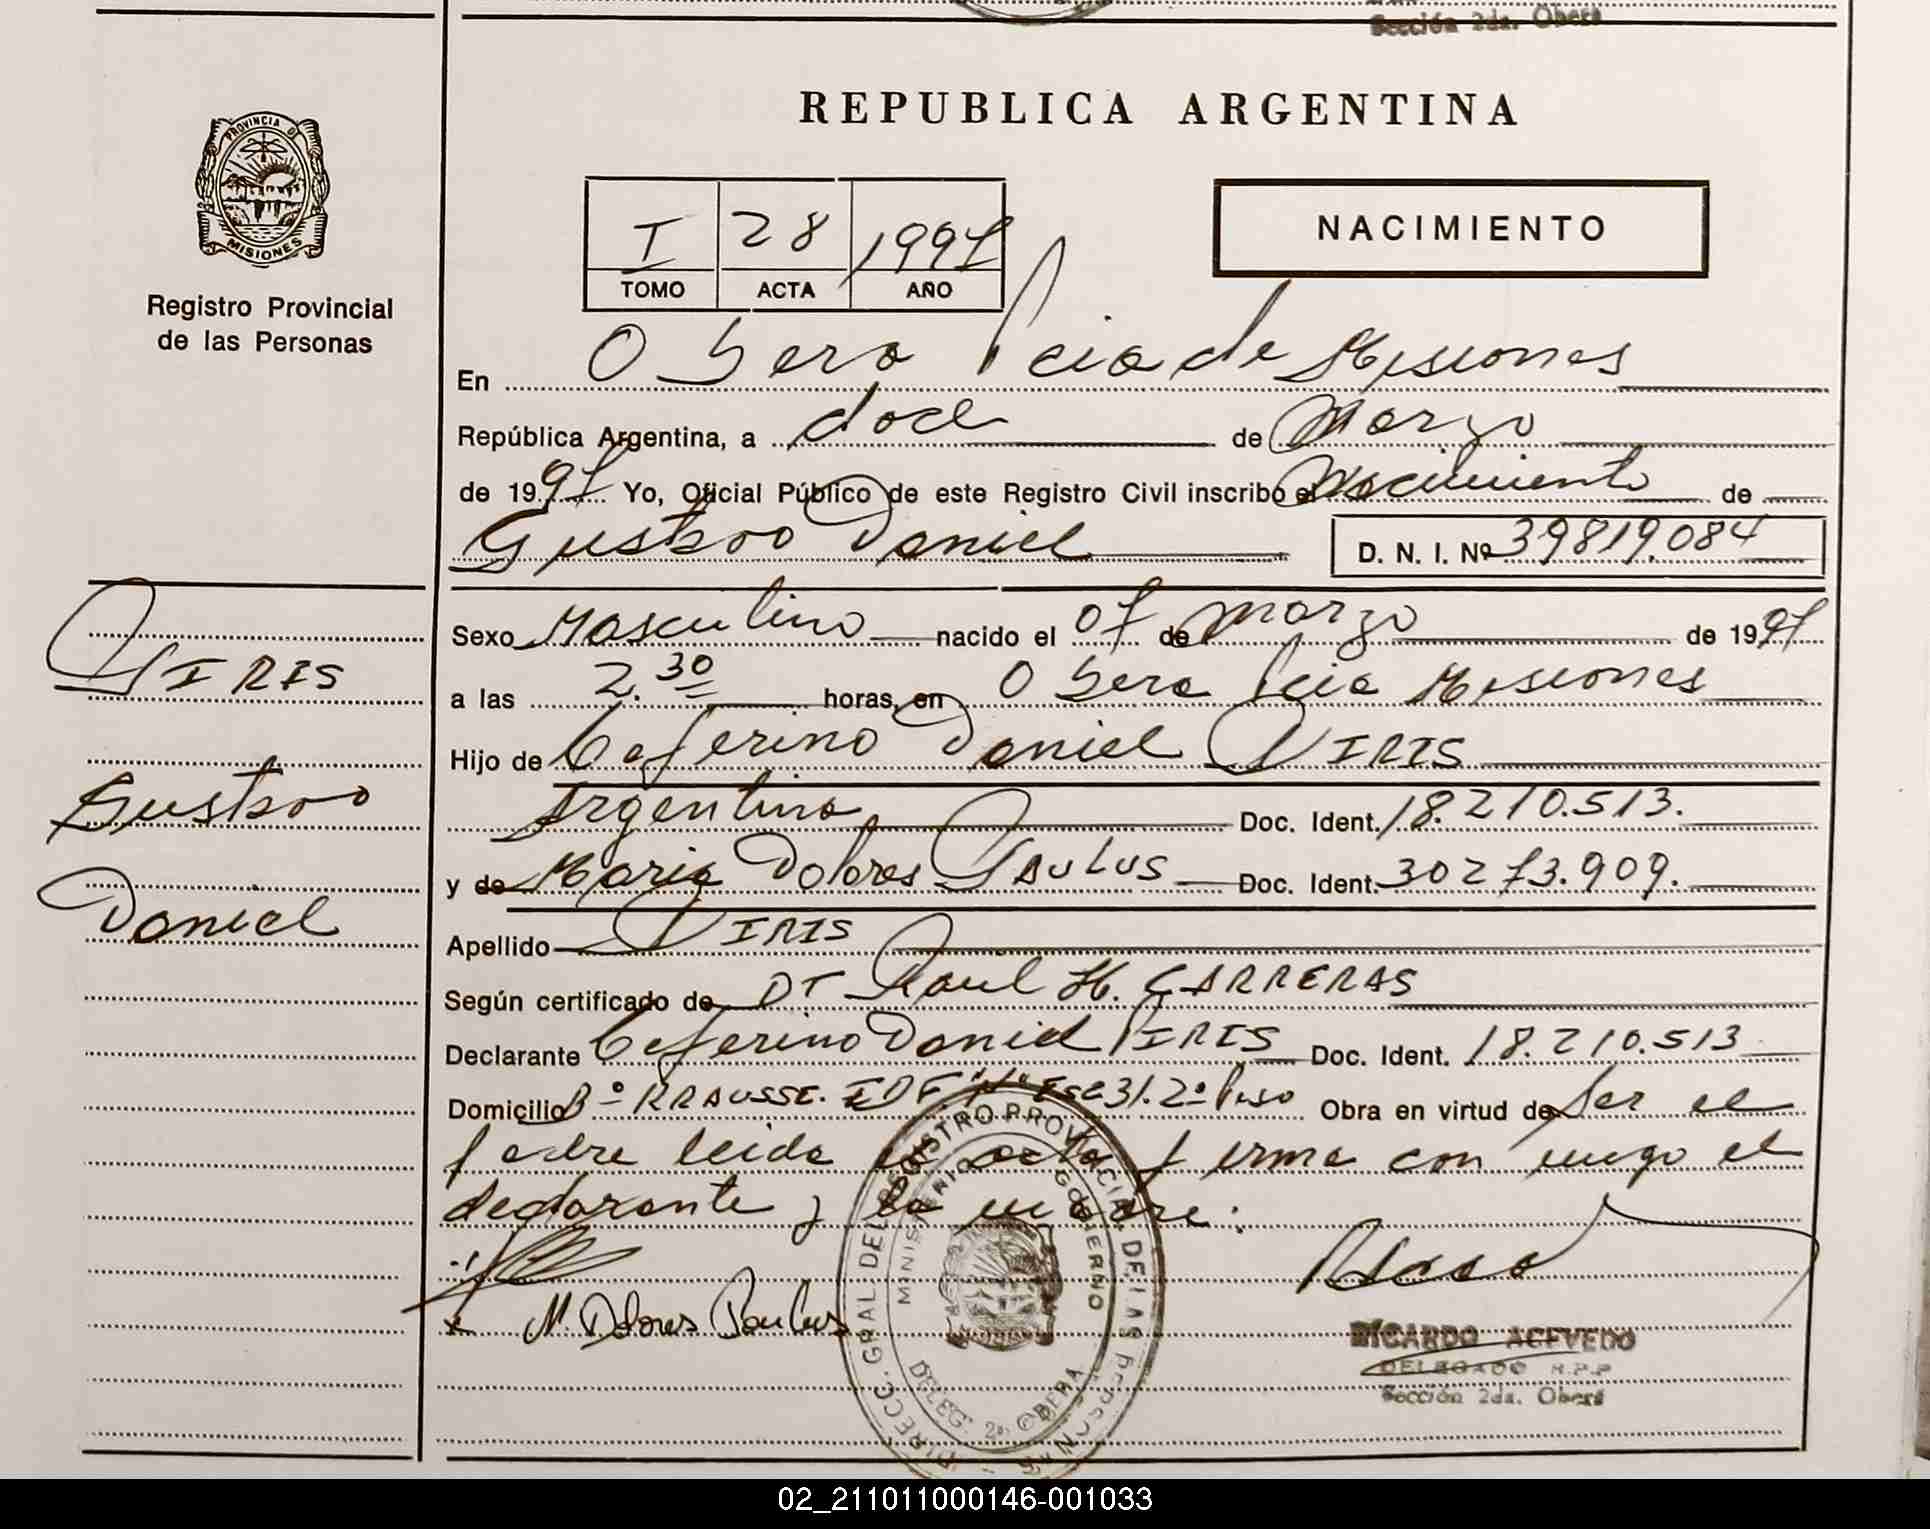 Sección 2da. Oberá
PROVINCIA DE
MISIONES
Registro Provincial
de las Personas
REPUBLICA ARGENTINA
I 28 1997
TOMO ACTA AÑO
NACIMIENTO
En Obera Pcia de Misiones
República Argentina, a doce de Marzo
de 1997 Yo, Oficial Público de este Registro Civil inscribo el Nacimiento de
Gustavo Daniel D. N. I. Nº 39819.084
Sexo Masculino nacido el 07 de Marzo de 1997
a las 2.30 horas, en Obera Pcia Misiones
Hijo de Ceferino Daniel VIRIS
Argentina Doc. Ident. 18.210.513.
y de Maria Dolores PAULUS Doc. Ident. 30273.909.
Apellido VIRIS
Según certificado de DT Raul H. CARRERAS
Declarante Ceferino Daniel PIRIS Doc. Ident. 18.210.513
Domicilio Bº KRAUSSE. EDF. Esc 31. 2º Piso Obra en virtud de Ser el
padre leida el acta firma con migo el
declarante y la madre:
M. Dolores Paulus
PIRIS
Gustavo
Daniel
DIRECC. GRAL DEL REGISTRO PROVINCIAL DE LAS PERSONAS
MINISTERIO DE GOBIERNO
DELEG. 2ª OBERA
RICARDO ACEVEDO
DELEGADO R.P.P
Sección 2da. Oberá
02_211011000146-001033